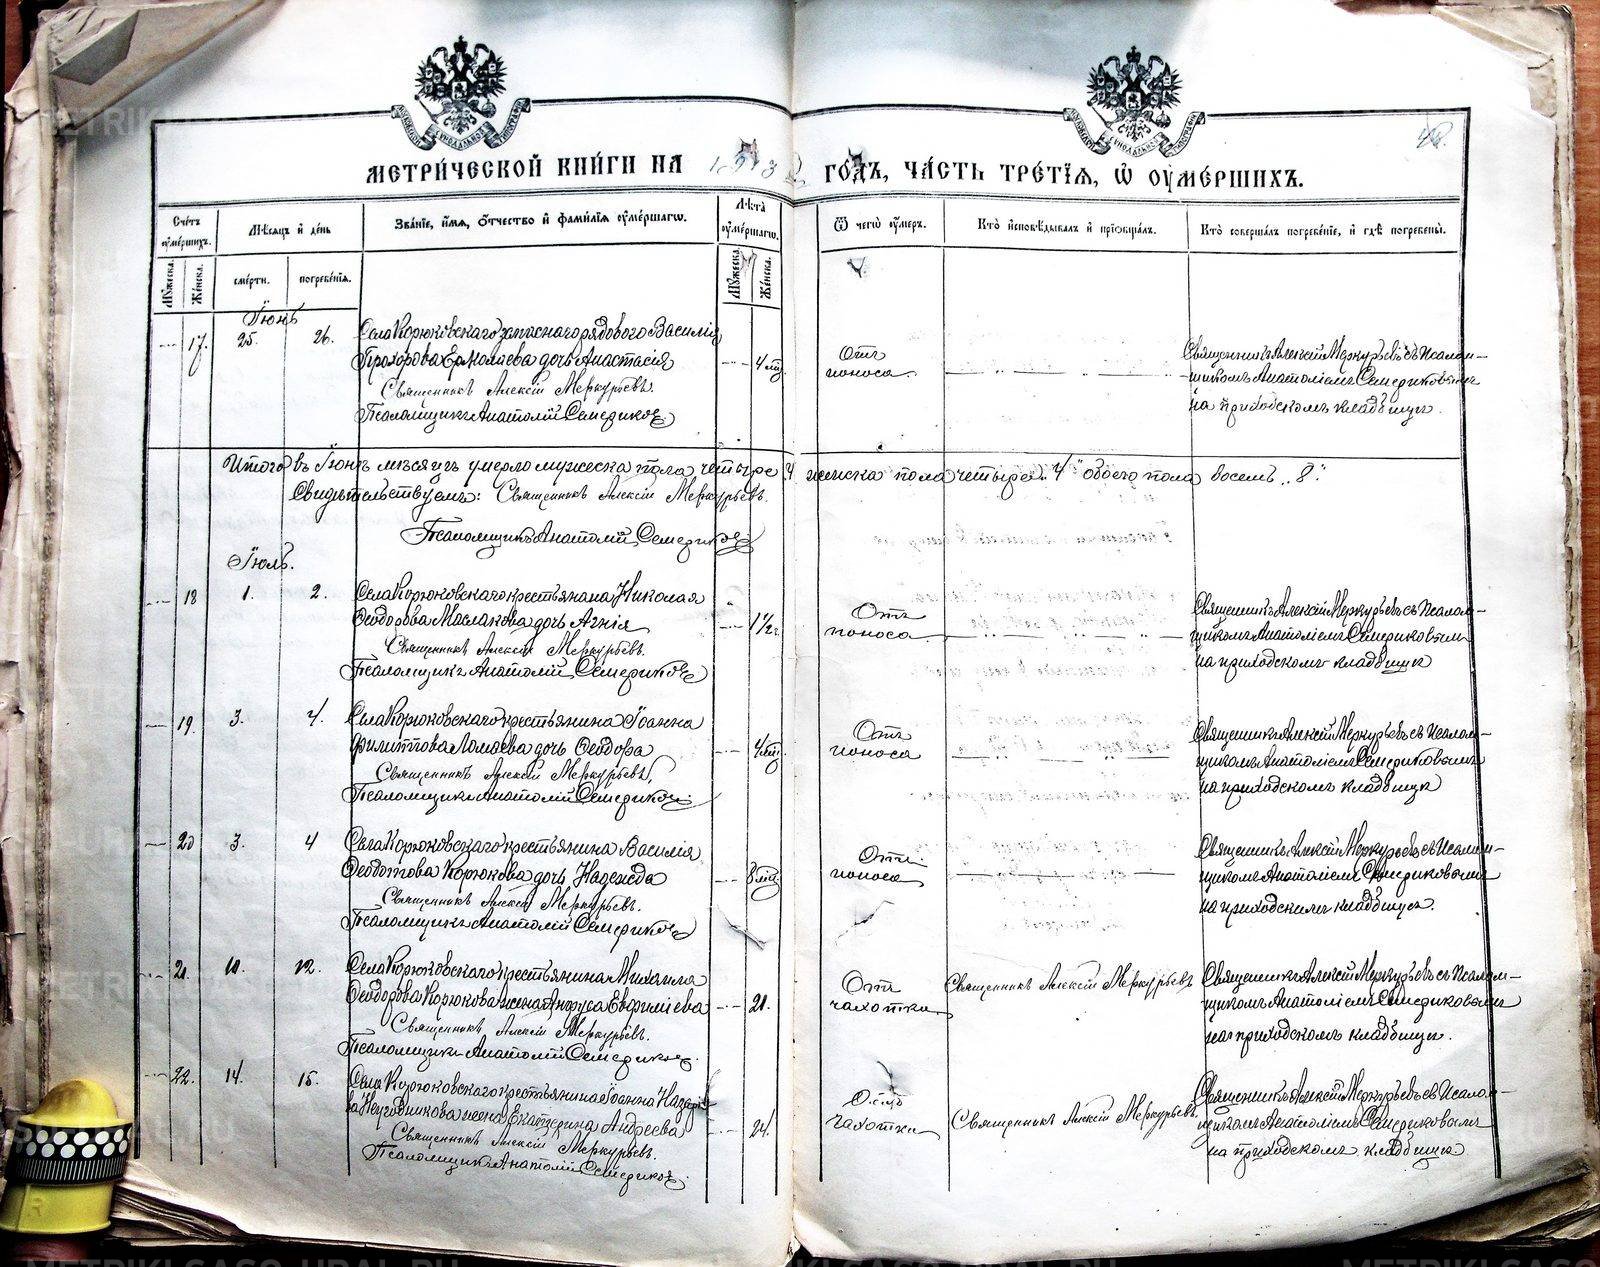 МЕТРИ́ЧЕСКОЙ КНИ́ГИ НА 1913 ГО́ДЪ, ЧА́СТЬ ТРЕ́ТЇЯ, Ѡ ОУМЕ́РШИХЪ.
Сче́тъ оумершихъ.
Мѣсяцъ и день
Зва́нїе, и́мя, о́тчество и фамилїя оуме́ршагѡ.
Лѣта оуме́ршагѡ.
Ѿ чегѡ оумеръ.
Кто исповѣдывалъ и прїобщалъ.
Кто совершалъ погребенїе, и гдѣ погребены.
Мужеска.
Женска.
смерти.
погребенїя.
Мужеска.
Женска.
Іюнь
17. 25. 26. Села Корюковскаго запаснаго рядового Василія
Прохорова Ермолаева дочь Анастасія 4 мц.
Священникъ Алексій Меркурьевъ.
Псаломщикъ Анатолій Семериков
Отъ
поноса.
Священникъ Алексій Меркурьевъ съ Псалом-
щикомъ Анатоліемъ Семериковымъ
на приходскомъ кладбищѣ.
Итого въ Іюнѣ мѣсяцѣ умерло мужеска пола четыре 4 женска пола четыре „4" обоего пола восемь „8".
Свидѣтельствуемъ: Священникъ Алексій Меркурьевъ.
Псаломщикъ Анатолій Семериков
Іюль.
18 1. 2. Села Корюковскаго крестьянина Николая
Ѳеодорова Маслакова дочь Агнія 1 1/2 г
Священникъ Алексій Меркурьевъ.
Псаломщикъ Анатолій Семериков
Отъ
поноса
Священникъ Алексій Меркурьевъ съ Псалом-
щикомъ Анатоліемъ Семериковымъ
на приходскомъ кладбищѣ
19. 3. 4. Села Корюковскаго крестьянина Іоанна
Филиппова Ломаева дочь Ѳеодора 4 мц.
Священникъ Алексій Меркурьевъ,
Псаломщикъ Анатолій Семериков
Отъ
поноса
Священникъ Алексій Меркурьевъ съ Псалом-
щикомъ Анатоліемъ Семериковымъ
на приходскомъ кладбищѣ
20 3. 4 Села Корюковскаго крестьянина Василія
Ѳеодотова Корюкова дочь Надежда 8 мц.
Священникъ Алексій Меркурьевъ.
Псаломщикъ Анатолій Семериков
Отъ
поноса
Священникъ Алексій Меркурьевъ съ Псалом-
щикомъ Анатоліемъ Семериковымъ
на приходскомъ кладбищѣ.
21. 12. Села Корюковскаго крестьянина Михаила
Ѳеодорова Корюкова жена Анфуса Евфиміева 21.
Священникъ Алексій Меркурьевъ.
Псаломщикъ Анатолій Семериков
Отъ
чахотки
Священникъ Алексій Меркурьевъ
Священникъ Алексій Меркурьевъ съ Псалом-
щикомъ Анатоліемъ Семериковымъ
на приходскомъ кладбищѣ.
22. 14. 15. Села Корюковскаго крестьянина Іоанна Назаро-
ва жена Екатерина Андреева 24.
Священникъ Алексій Меркурьевъ.
Псаломщикъ Анатолій Семериков
Отъ
чахотки
Священникъ Алексій Меркурьевъ.
Священникъ Алексій Меркурьевъ съ Псалом-
щикомъ Анатоліемъ Семериковымъ
на приходскомъ кладбищѣ